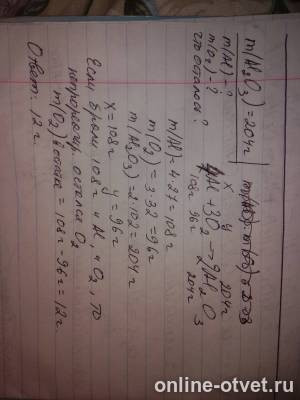 m(Al₂O₃)=204г
m(Al)-?
m(O₂)-?
что осталось?
x y 204г
4Al + 3O₂ → 2Al₂O₃
108г 96г 204г
m(Al)=4·27=108г
m(O₂)=3·32=96г
m(Al₂O₃)=2·102=204г
x=108г y=96г
Если взяли 108г и Al, и O₂, то
непрореагир. остался O₂
m(O₂)остатка = 108г-96г=12г.
Ответ: 12г.
online-otvet.ru